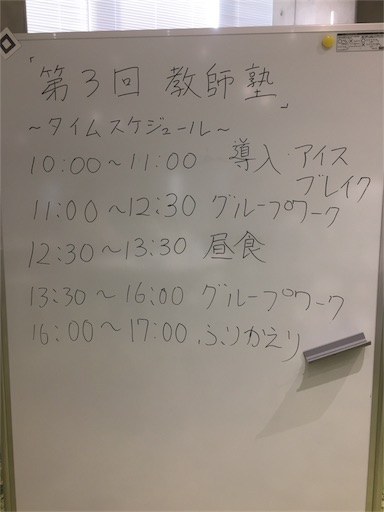 「第3回 教師塾」
～タイムスケジュール～
10:00～11:00 導入・アイス
ブレイク
11:00～12:30 グループワーク
12:30～13:30 昼食
13:30～16:00 グループワーク
16:00～17:00 ふりかえり